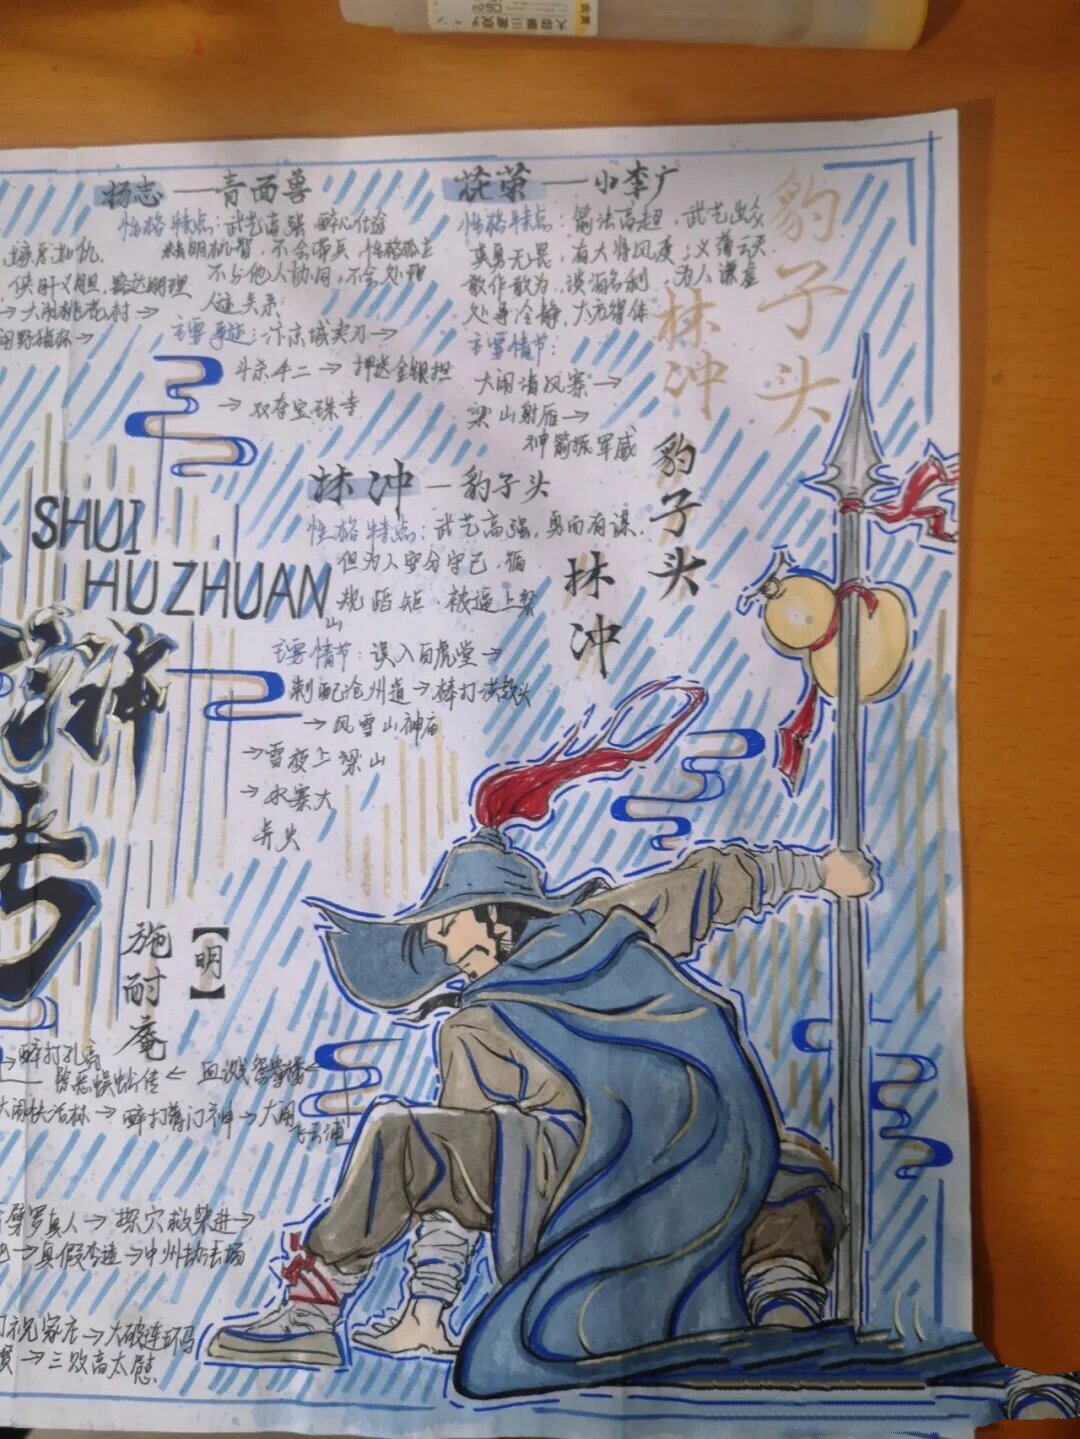 杨志——青面兽
性格特点：武艺高强 醉心仕途
精明机智，不会带兵 性格孤立
不与他人协同，不会处理
人迹关系
主要事迹：汴京城卖刀→
斗杀牛二→押送金银担
→双夺宝珠寺
花荣——小李广
性格特点：箭法高超，武艺出众
英勇无畏，有大将风度；义薄云天
敢作敢为，淡泊名利，为人谦虚
处事冷静，大方得体
主要情节：
大闹清风寨→
梁山射雁→
神箭振军威
豹子头
林冲
侠肝义胆，豁达明理
→大闹桃花村→
闹野猪林→
林冲—豹子头
性格特点：武艺高强，勇而有谋，
但为人安分守己，循
规蹈矩，被逼上梁
山
主要情节：误入白虎堂→
刺配沧州道→棒打洪教头
→风雪山神庙
→雪夜上梁山
→水寨大
并火
豹子头
林冲
SHUI
HU ZHUAN
浒
传
【明】
施耐庵
→醉打孔亮
除恶蜈蚣传← 血溅鸳鸯楼←
大闹快活林→醉打蒋门神→大闹
飞云浦
劈罗真人→探穴救柴进→
→真假李逵→中州劫法场
打祝家庄→大破连环马
→三败高太慰